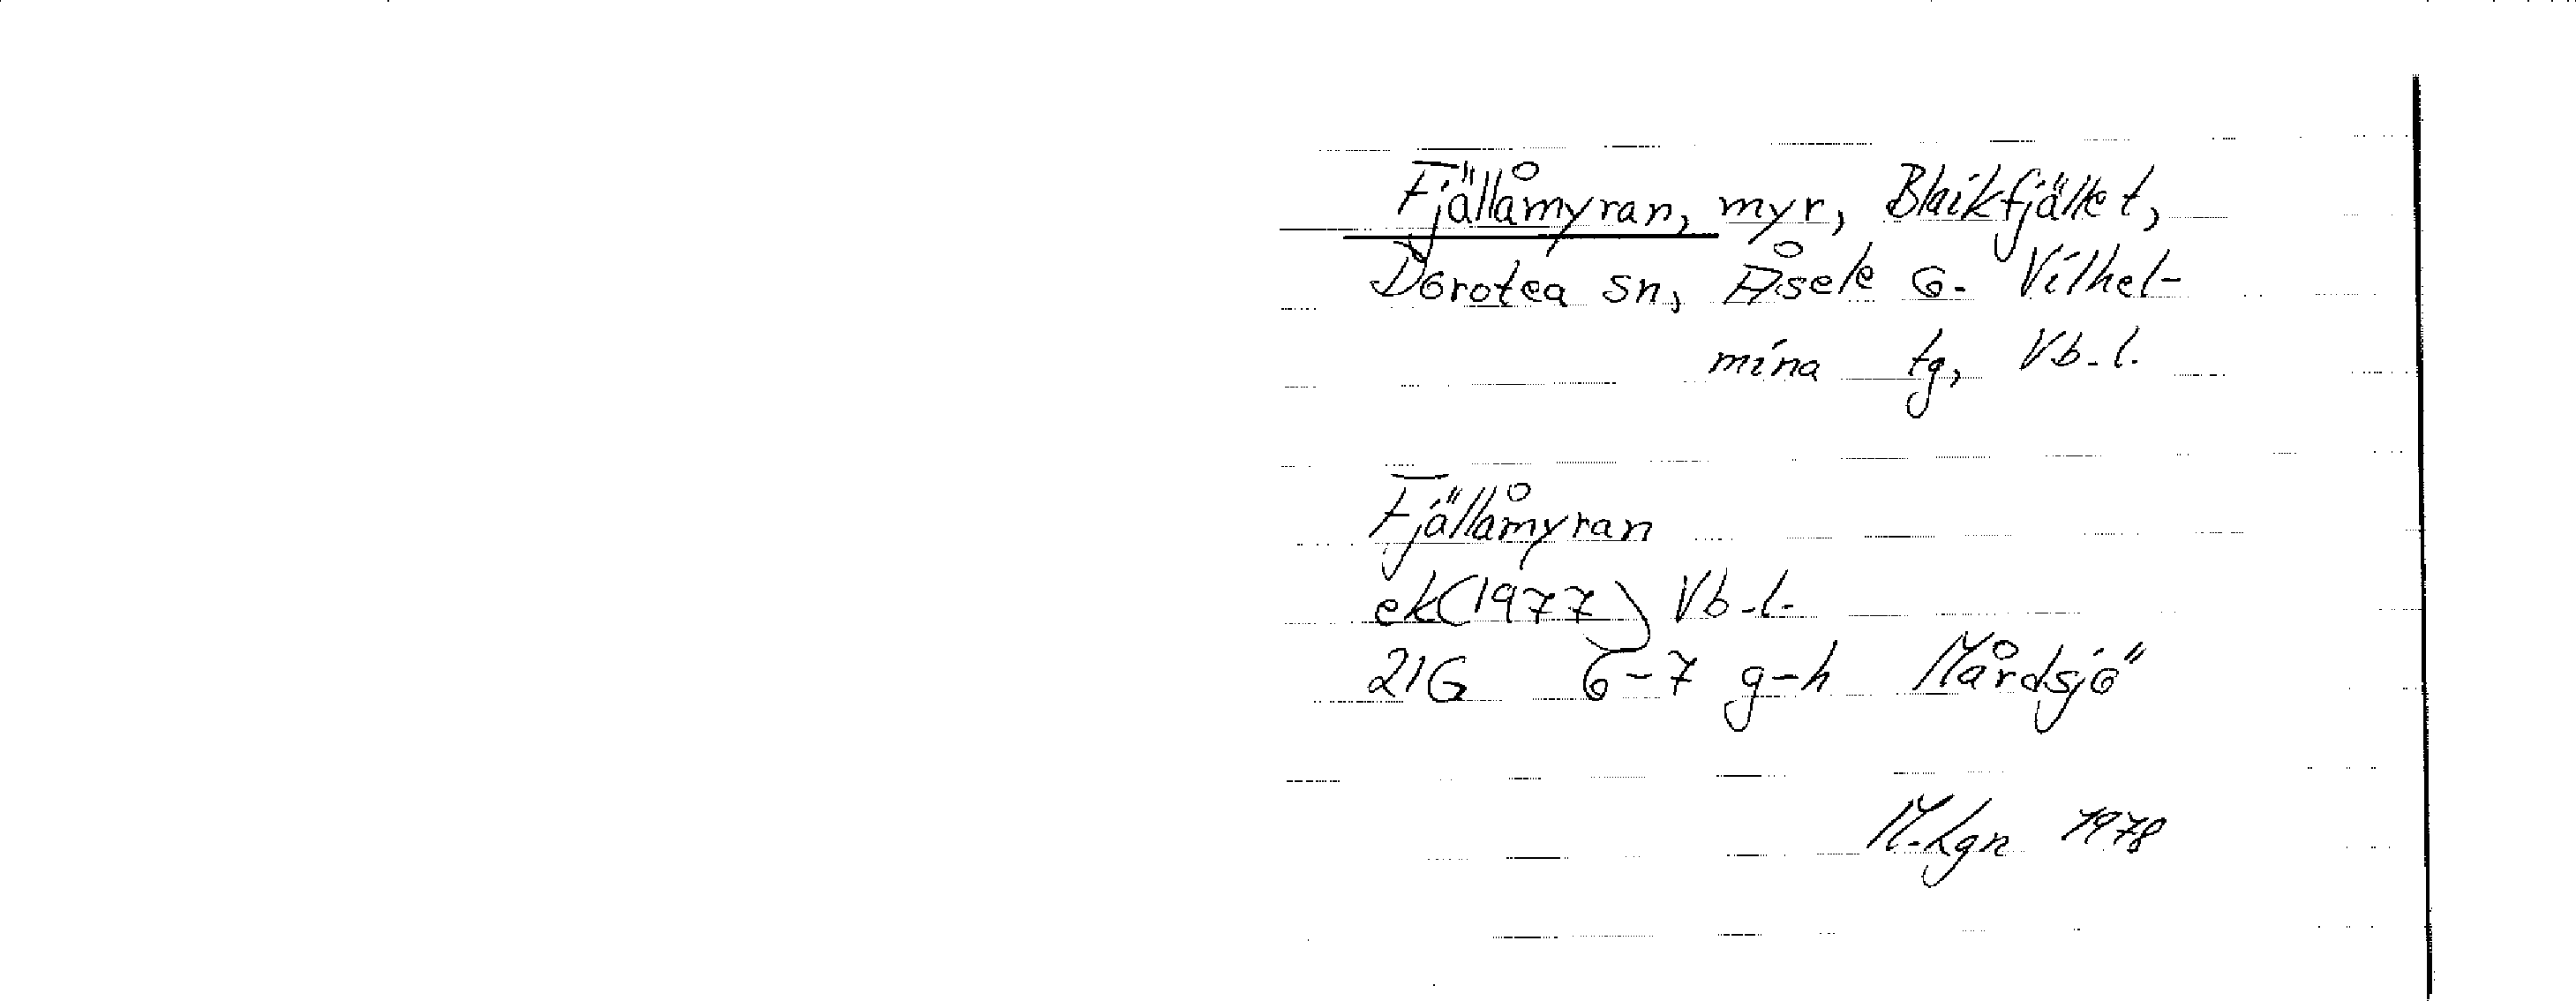 Fjällåmyran, myr, Blaikfjället,
Dorotea sn, Åsele o. Vilhel-
mina tg, Vb. l.
Fjällåmyran
ek(1977) Vb. l.
21G 6-7 g-h Mårdsjö
M.Lgn 1978